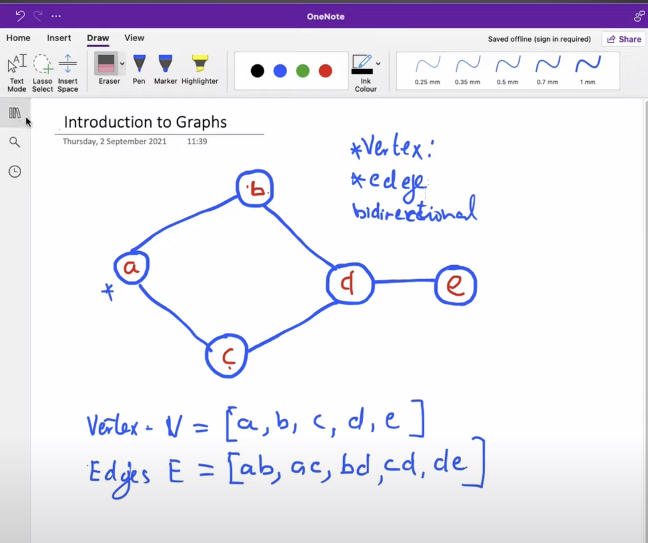 OneNote
Home Insert Draw View
Saved offline (sign in required) Share
Text Mode
Lasso Select
Insert Space
Eraser
Pen
Marker
Highlighter
Ink Colour
0.25 mm 0.35 mm 0.5 mm 0.7 mm 1 mm
Introduction to Graphs
Thursday, 2 September 2021 11:39
*Vertex:
*edge
bidirectional
b
a
*
d
e
c
Vertex - V = [a, b, c, d, e]
Edges E = [ab, ac, bd, cd, de]